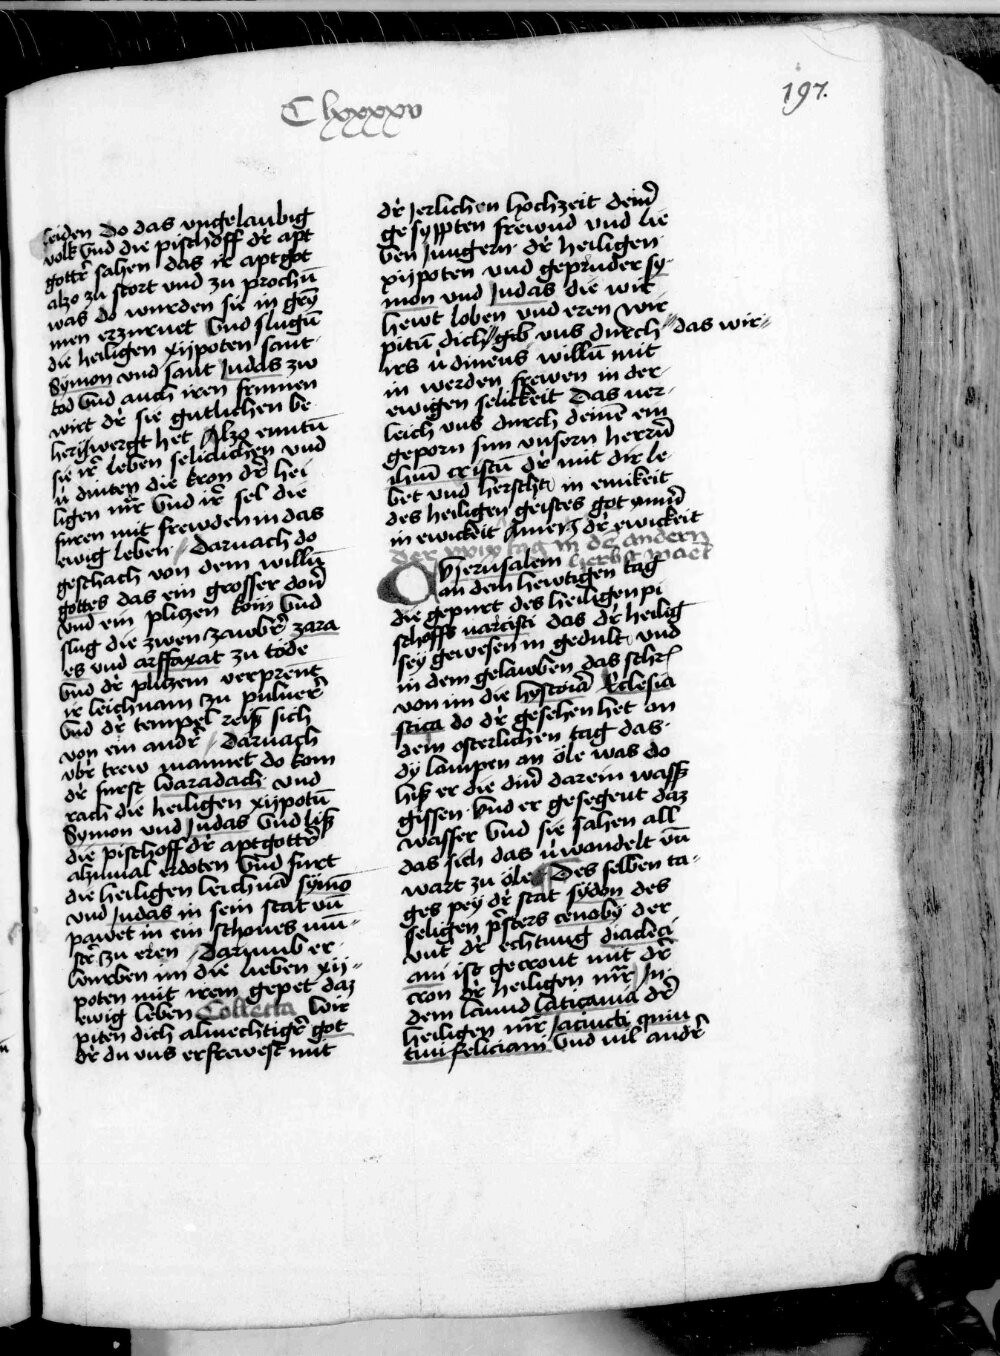 Clxxxxv
197.
leiden do das vngelaubig
volk vnd die pischoff dr apt
gottr sahen das ir aptgot
alzo zu stort vnd zu prochn̄
was do wurden sie in grȳ
men erzurnet vnd slugn̄
die heiligen xijpoten sant
Symon vnd sant Judas zw
tod vnd auch iren frumen
wirt dr sie gutlichen be
herigwergt het Alzo entū
sie ir leben seliclichen vnd
v̇dinten die kron dr hei
ligen mr̄ vnd ir sel die
furen mit frewden in das
ewig leben // Darnach do
geschach von dem willn̄
gottes das ein grosser don̄
vnd ein pliczen kom vnd
slug die zwen zawbr̄ zara
es vnd arffaxat zu tode
vnd dr pliczem verprent
ir leichnam zu puluer
vnd dr tempel reiss sich
von ein andr̄ // Darnach
vbr̄ trew mannet do kom
dr furst Waradach vnd
rach die heiligen xijpotn̄
Symon vnd Judas vnd liss
die pischoff dr aptgottr̄
alzumal erdoten vnd furt
die heiligen leichnā symō
vnd Judas in sein stat vn̄
pawet in ein schones mū-
str̄ zu eren / Darumb er
wurben im die lieben xij-
poten mit irem gepet daz
ewig leben Collecta Wir
piten dich almechtigr̄ got
dr du vns erfrewest mit
dr jerlichen hochzeit dein̄
gesyppten frewnd vnd lie
ben Jungern dr heiligen
xijpoten vnd gepruder sy-
mon vnd Judas die wir
hewt loben vnd eren wir
pitn̄ dich // gib vns durch // das wir //
irs v̇dinens willn̄ mit
in werden frewen in der
ewigen selickeit Das ver
leich vns durch deinē ein
geporn sun vnsern herrn̄
ihm̄ cristū dr mit dir le
bet vnd herscht in einikeit
des heiligen geistes got ymm̄
in ewickeit Amen dr ewickeit
der xxix tag in dē andern
herbst mact
O Jherusalem
an dem hewtigen tag
die gepurt des heiligen pi
schoffs narcisci das dr heilig
sey gewesen in gedult vnd
in dem gelawben das schr̄
von im die hystoriā Ecclesia
stica do dr gesehen het an
dem osterlichen tag das
dy lampen an öle was do
hiss er die din̄ darein wass
gissen vnd er gesegent daz
wasser vnd sie sahen all
das sich das v̇wandelt vn̄
wart zu öle Des selben ta-
ges pey dr stat sydon des
seligen pr̄sters cenoby der
vnt dr echtung diacleci
ani ist gecront mit dr
cron dr heiligen mr̄ In
dem lannd laticania dr̄
heiligen mr̄ Jacincti quin
tini feliciani vnd vil andr̄